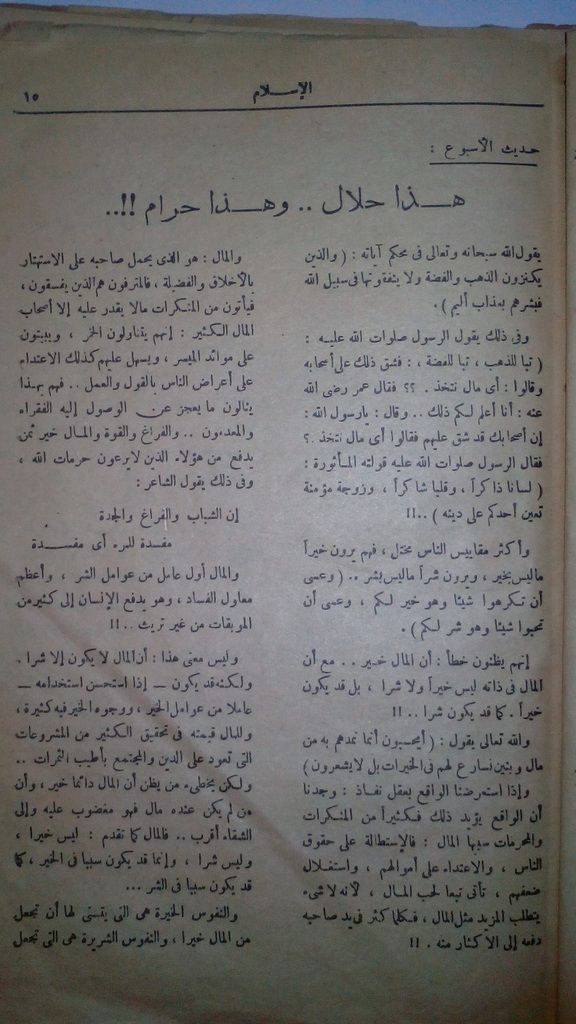 الإسلام
١٥
حديث الأسبوع :
هذا حلال .. وهذا حرام !!..
يقول الله سبحانه وتعالى فى محكم آياته : ( والذين
يكنزون الذهب والفضة ولا ينفقونها فى سبيل الله
فبشرهم بعذاب أليم ) .
وفى ذلك يقول الرسول صلوات الله عليه :
( تبا للذهب ، تبا للفضة ، : فشق ذلك على أصحابه
وقالوا : أى مال نتخذ . ؟؟ فقال عمر رضى الله
عنه : أنا أعلم لكم ذلك .. وقال : يارسول الله :
إن أصحابك قد شق عليهم فقالوا أى مال نتخذ .؟
فقال الرسول صلوات الله عليه قولته المأثورة :
( لسانا ذاكراً ، وقلبا شاكراً ، وزوجة مؤمنة
تعين أحدكم على دينه ) ..!!
وأكثر مقاييس الناس مختل ، فهم يرون خيراً
ماليس بخير ، ويرون شراً ماليس بشر .. ( وعسى
أن تكرهوا شيئا وهو خير لكم ، وعسى أن
تحبوا شيئا وهو شر لكم ) .
إنهم يظنون خطأ : أن المال خير .. مع أن
المال فى ذاته ليس خيراً ولا شرا ، بل قد يكون
خيراً . كما قد يكون شرا .. !!
والله تعالى يقول : ( أيحسبون أنما نمدهم به من
مال وبنين نسارع لهم فى الخيرات بل لايشعرون )
وإذا استعرضنا الواقع بعقل نفاذ : وجدنا
أن الواقع يؤيد ذلك فكثيراً من المنكرات
والمحرمات سببها المال : فالإستطالة على حقوق
الناس ، والاعتداء على أموالهم ، واستغلال
ضعفهم ، تأتى تبعا لحب المال ، لأنه لا شىء
يتطلب المزيد مثل المال ، فكلما كثر فى يد صاحبه
دفعه إلى الاكثار منه . !!
والمال : هو الذى يحمل صاحبه على الاستهتار
بالأخلاق والفضيلة ، فالمترفون هم الذين يفسقون ،
فيأتون من المنكرات مالا يقدر عليه إلا أصحاب
المال الكثير : إنهم يتناولون الخمر ، ويبيتون
على موائد الميسر ، ويسهل عليهم كذلك الاعتداء
على أعراض الناس بالقول والعمل .. فهم بهذا
ينالون ما يعجز عن الوصول إليه الفقراء
والمعدمون .. والفراغ والقوة والمال خير ثمن
يدفع من هؤلاء الذين لا يرعون حرمات الله ،
وفى ذلك يقول الشاعر :
إن الشباب والفراغ والجدة
مفسدة للمرء أى مفسدة
والمال أول عامل من عوامل الشر ، وأعظم
معاول الفساد ، وهو يدفع الإنسان إلى كثير من
الموبقات من غير تريث .. !!
وليس معنى هذا : أن المال لا يكون إلا شرا .
ولكنه قد يكون — إذا استحسن استخدامه —
عاملا من عوامل الخير ، ووجوه الخير فيه كثيرة ،
والمال قيمته فى تحقيق الكثير من المشروعات
التى تعود على الدين والمجتمع بأطيب الثمرات ..
ولكن يخطىء من يظن أن المال دائما خير ، وأن
من لم يكن عنده مال فهو مغضوب عليه وإلى
الشقاء أقرب .. فالمال كما تقدم : ليس خيرا ،
وليس شرا ، وإنما قد يكون سببا فى الخير ، كما
قد يكون سببا فى الشر ...
والنفوس الخيرة هى التى يتسنى لها أن تجعل
من المال خيرا ، والنفوس الشريرة هى التى تجعل